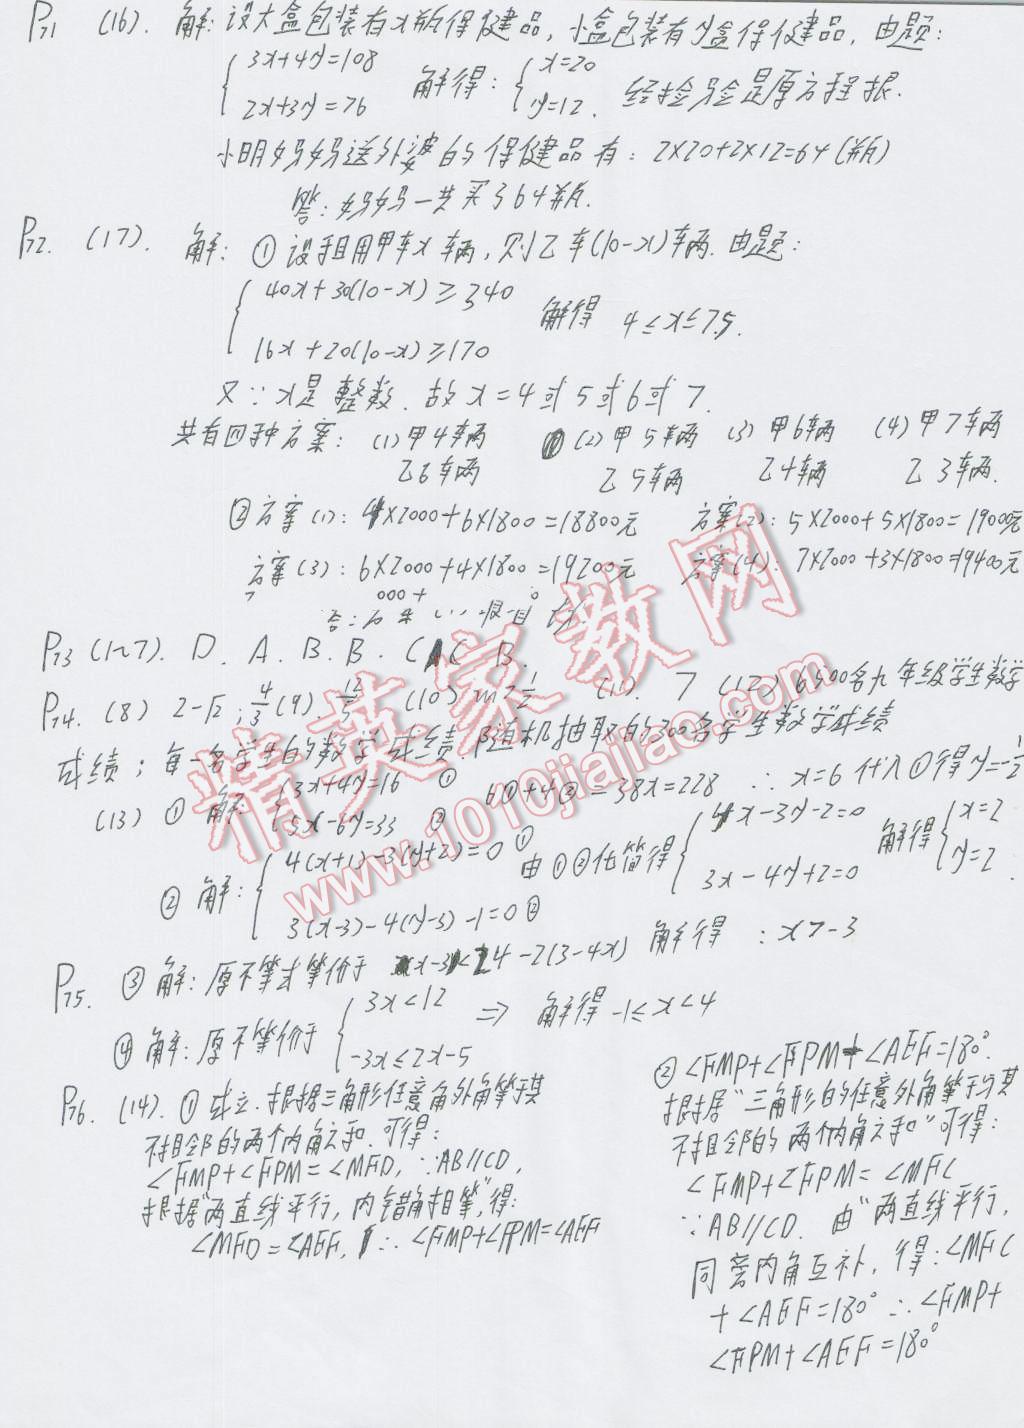 P71 (16). 解: 设大盒包装有x瓶保健品, 小盒包装有y盒保健品, 由题:
3x+4y=108
2x+3y=76
解得: x=20
y=12. 经检验是原方程根.
小明妈妈送外婆的保健品有: 2×20+2×12=64(瓶)
答: 妈妈一共买了64瓶.
P72. (17). 解: ① 设租用甲车x辆, 则乙车(10-x)辆. 由题:
40x+30(10-x)≥340
16x+20(10-x)≥170
解得 4≤x≤7.5.
又∵x是整数. 故x=4或5或6或7.
共有四种方案: (1)甲4辆 (2)甲5辆 (3)甲6辆 (4)甲7辆
乙6辆 乙5辆 乙4辆 乙3辆.
②方案(1): 4×2000+6×1800=18800元 方案(2): 5×2000+5×1800=19000元
方案(3): 6×2000+4×1800=19200元 方案(4): 7×2000+3×1800=19400元
P73 (1~7). D. A. B. B. C C B.
P74. (8) 2-√2; 4/3 (9) (10) (11). 7 (12) 6500名九年级学生数学
成绩; 每一名学生的数学成绩. 随机抽取的300名学生数学成绩
(13) ① 解: 3x+4y=16 ①
5x-6y=33 ②
6①+4②=38x=228 ∴x=6 代入①得y=-1/2
② 解: 4(x+1)-3(y+2)=0 ①
3(x-3)-4(y-3)-1=0 ②
由①②化简得 4x-3y-2=0
3x-4y+2=0
解得 x=2
y=2.
P75. ③ 解: 原不等式等价于 x-3<24-2(3-4x) 解得: x>-3
④ 解: 原不等价于 3x<12
-3x≤2x-5
⇒ 解得 -1≤x<4
P76. (14). ① 成立. 根据三角形任意角外角等于其
不相邻的两个内角之和. 可得:
∠FMP+∠FPM=∠MFD, ∵AB//CD,
根据"两直线平行, 内错角相等", 得:
∠MFD=∠AEF, ∴∠FMP+∠FPM=∠AEF
② ∠FMP+∠FPM+∠AEF=180°.
根据"三角形的任意外角等于与其
不相邻的两个内角之和"可得:
∠FMP+∠FPM=∠MFC
∵AB//CD. 由"两直线平行,
同旁内角互补, 得: ∠MFC
+∠AEF=180° ∴∠FMP+
∠FPM+∠AEF=180°
精英家教网
www.1010jiajiao.com